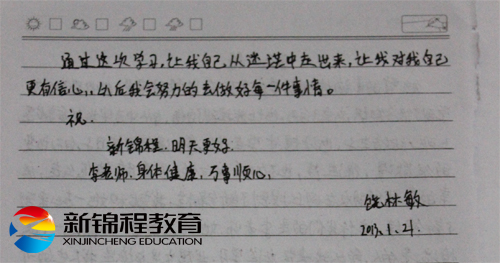 通过这次学习,让我自己从迷茫中走出来,让我对我自己
更有信心,以后我会努力的去做好每一件事情。
祝.
新锦程.明天更好.
李老师.身体健康,万事顺心.
饶林敏
2013.1.21.
新锦程教育
XINJINCHENG EDUCATION